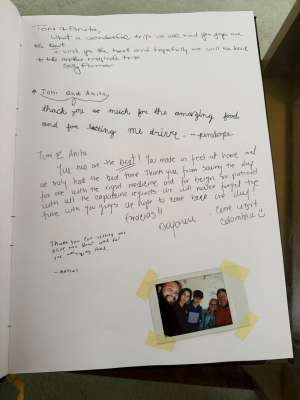 Toni & Anita,
What a wonderful trip we had and you guys are
the best
I wish you the best and hopefully we will be back
to the another magical trip
* Toni and Anita,
thank you so much for the amazing food
and for letting me drive. - penelope
Toni & Anita
You two are the best!! You made us feel at home and
we truly had the best time. Thank you from saving the day
for me with the right medicine and for being so patient
with all the capitaine requests. We will never forget the
time with you guys & hope to come back one day!
Gracias!! Come visit
Colombia
Thank you for letting me
and for
the amazing food.
- Matias